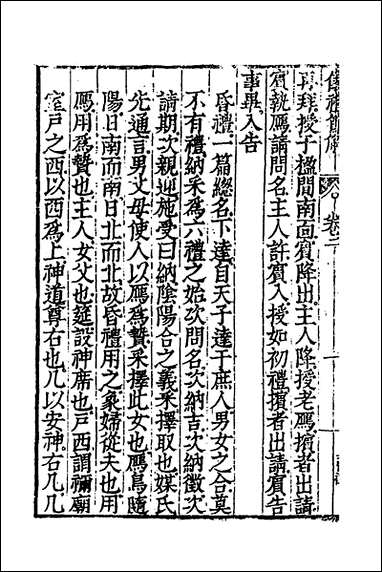 儀禮節解 卷二
再拜授于楹間南面賓降出主人降授老鴈擯者出請
賓執鴈請問名主人許賓入授如初禮擯者出請賓告
事畢入告
昏禮一篇總名下達自天子達于庶人男女之合莫
不有禮納采為六禮之始次問名次納吉次納徵次
請期次親迎施受曰納陰陽合之義采擇取也媒氏
先通言男父母使人以鴈為贄采擇此女也鴈鳥隨
陽日南而南日北而北故昏禮用之象婦從夫也用
鴈用為贄也主人女父也筵設神席也戶西謂禰廟
室戶之西以西為上神道尊右也几以安神右几几